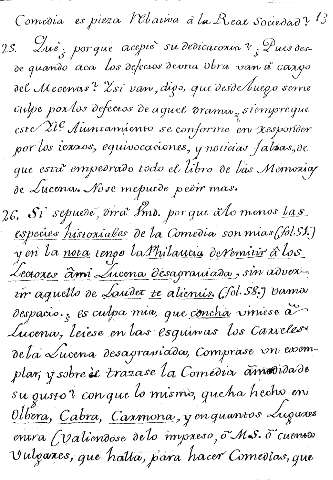 Comedia es pieza relativa á la Real Sociedad? 13
25. Qué, porque acepté su dedicatoria? ¿Pues des-
de quando acá los defectos de una obra van á cargo
del Mecenas? Y si van, digo, que desde luego se me
culpe por los defectos de aquel Drama, siempre que
este Ayuntamiento se conforme en responder
por los ierros, equivocaciones, y noticias falsas, de
que está empedrado todo el libro de las Memorias
de Lucena. No se me puede pedir mas.
26. Si se puede, dirá Vmd. porque á lo menos las
especies historiales de la Comedia son mias (fol. 51.)
y en la nota tengo la Philaucia de remitir á los
Lectores á mi Lucena desagraviada, sin adver-
tir aquello de Laudet te alienus. (fol. 58.) Vamos
despacio. ¿es culpa mia, que Concha viniese á
Lucena, leiese en las esquinas los Carteles
de la Lucena desagraviada, comprase un exem-
plar, y sobre él trazase la Comedia á medida de
su gusto? con que lo mismo, que ha hecho en
Olbera, Cabra, Carmona, y en quantos Lugares
entra (valiendose de lo impreso, ó M.S. ó cuentos
vulgares, que halla, para hacer Comedias, que